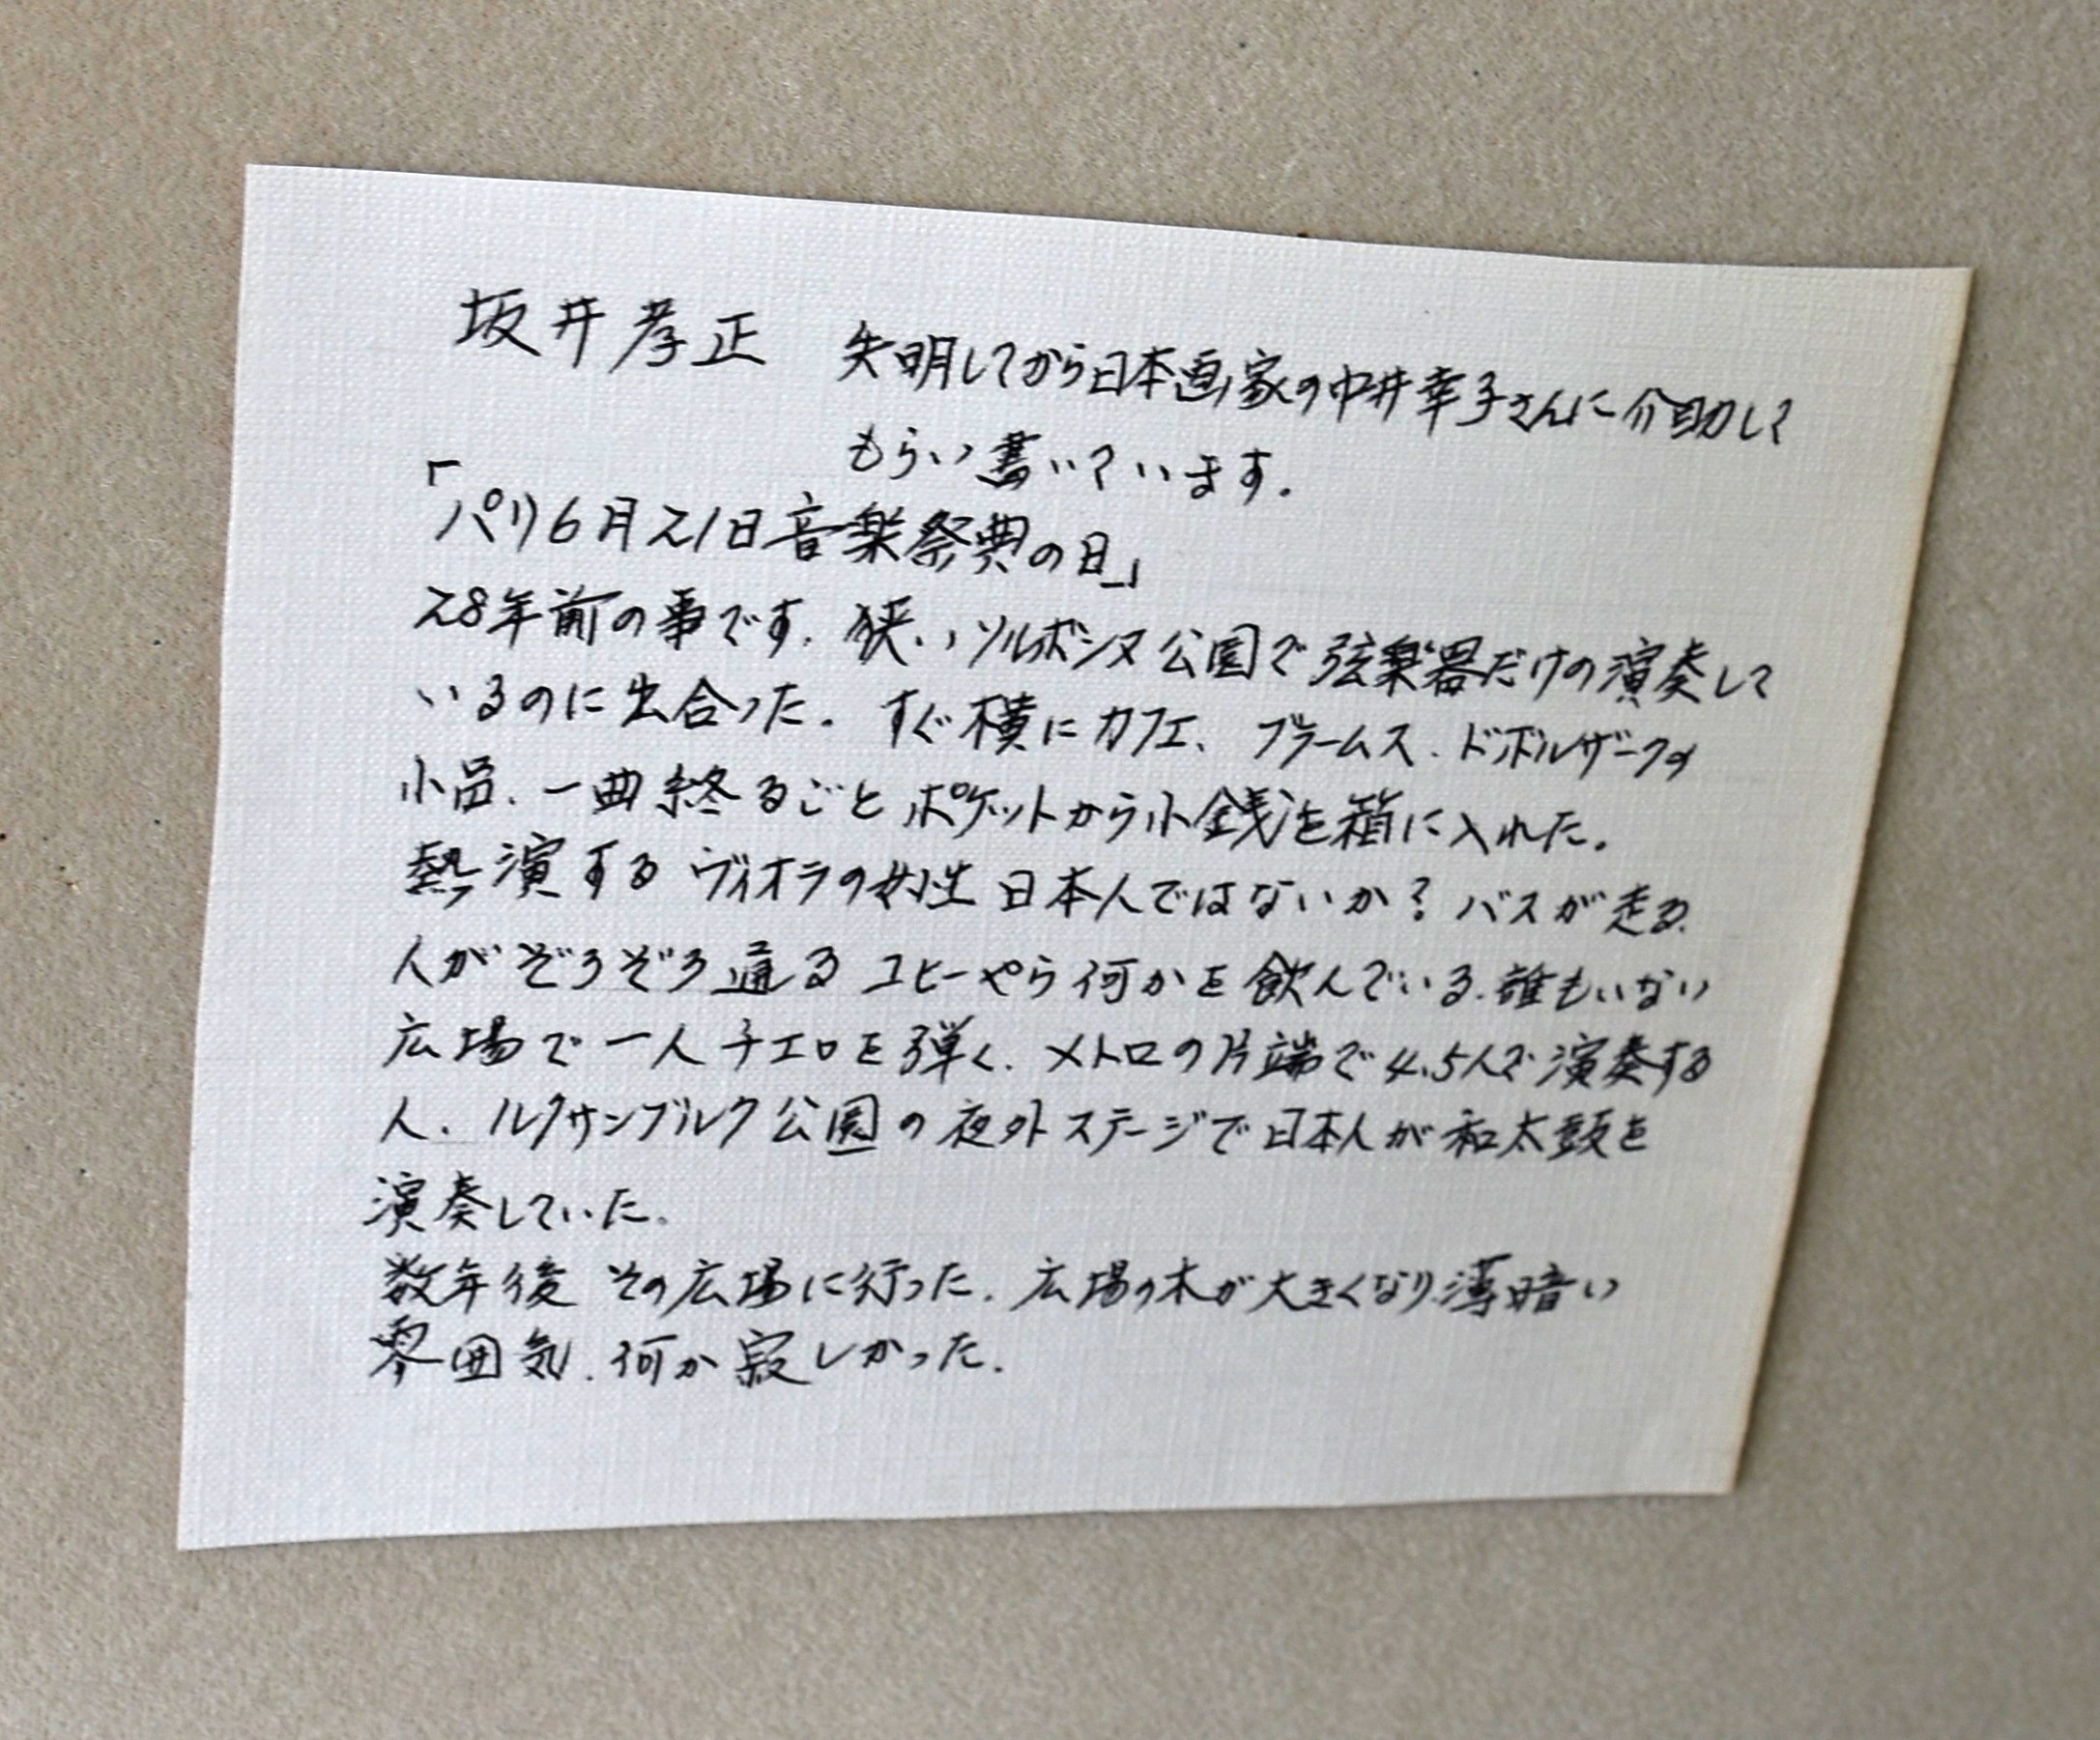 坂井孝正 失明してから日本画家の中井幸子さんに介助して
もらい書いています。
「パリ6月21日音楽祭典の日」
28年前の事です。狭いソルボンヌ公園で弦楽器だけの演奏して
いるのに出合った。すぐ横にカフェ、ブラームス、ドボルザークの
小品、一曲終るごとポケットから小銭を箱に入れた。
熱演するヴィオラの女性 日本人ではないか? バスが走る、
人がぞろぞろ通る コヒーやら何かを飲んでいる、誰もいない
広場で一人チエロを弾く、メトロの片端で4、5人で演奏する
人、ルクサンブルク公園の夜外ステージで日本人が和太鼓を
演奏していた。
数年後 その広場に行った、広場の木が大きくなり薄暗い
雰囲気、何か寂しかった。